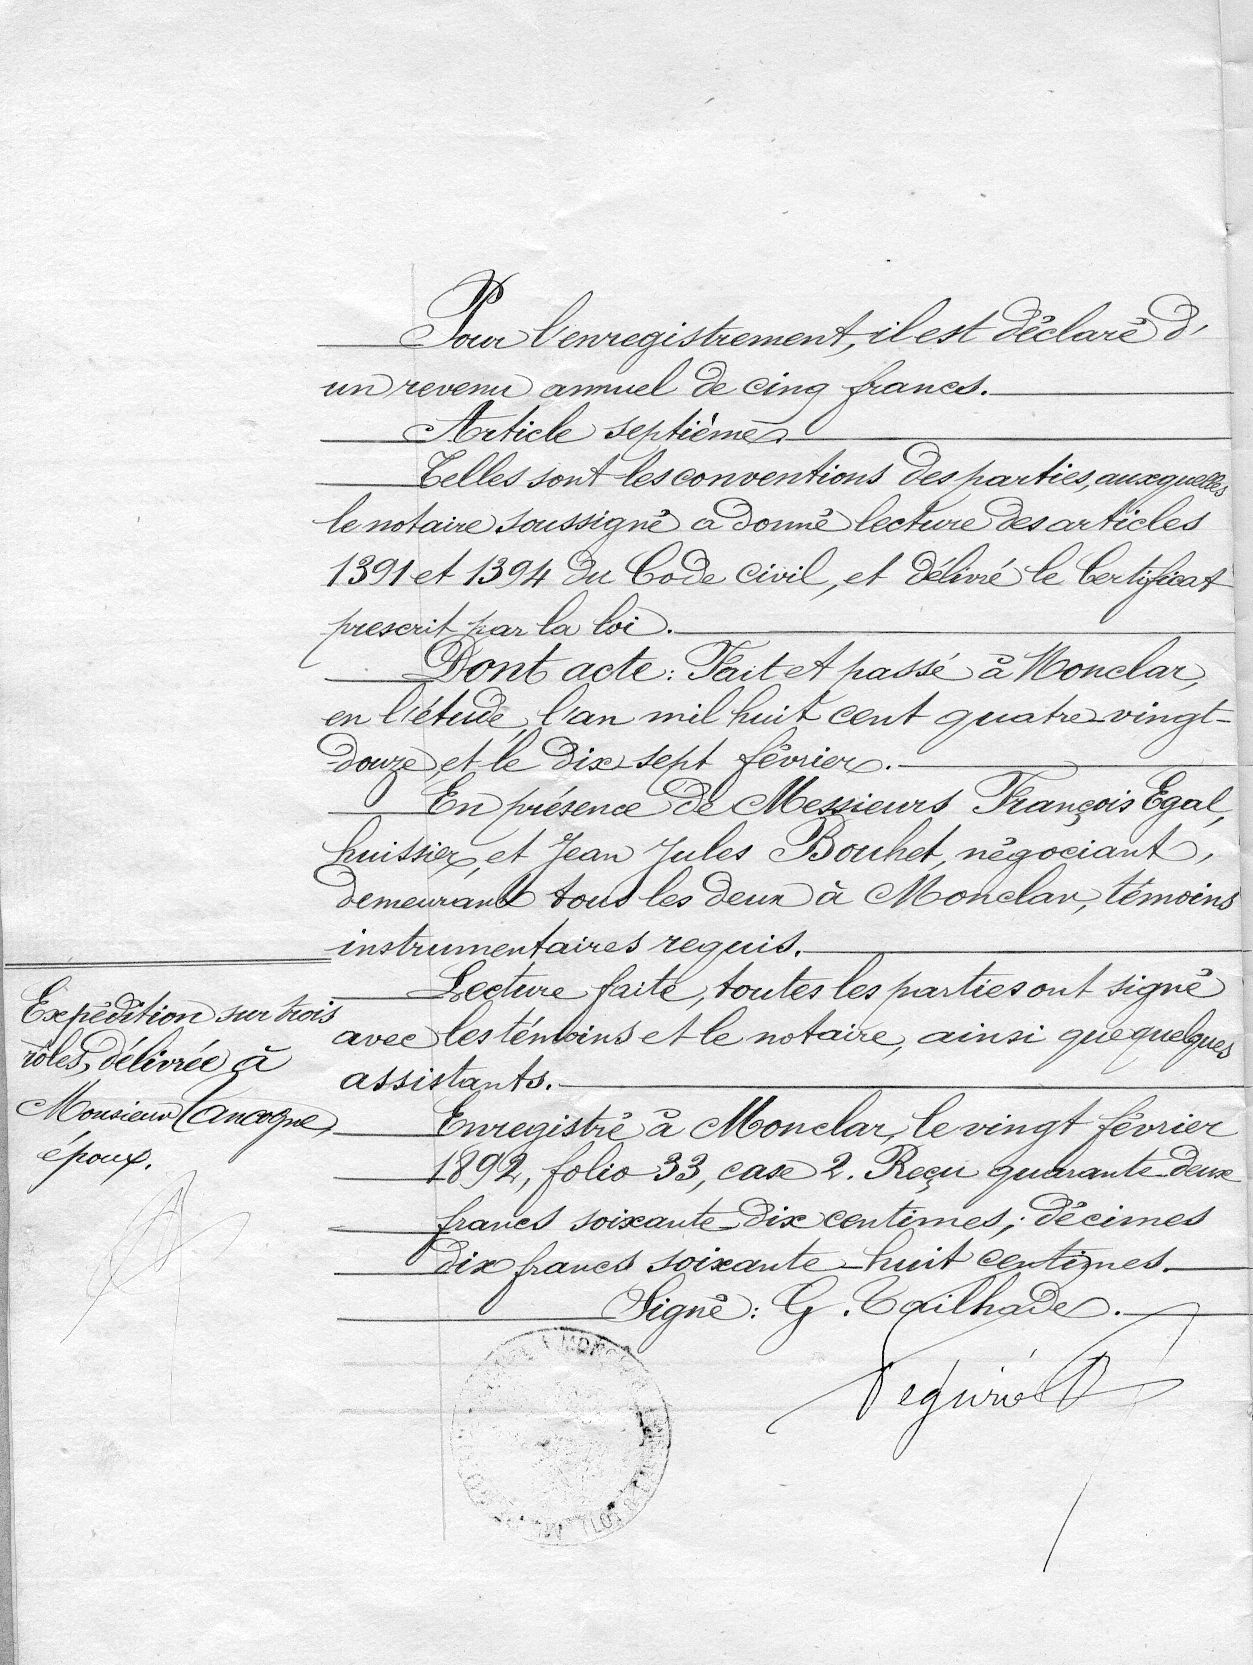 Pour l'enregistrement, il est déclaré d'
un revenu annuel de cinq francs.
Article septième.
Telles sont les conventions des parties, auxquelles
le notaire soussigné a donné lecture des articles
1391 et 1394 du Code civil, et délivré le Certificat
prescrit par la loi.
Dont acte : Fait et passé à Monclar,
en l'étude, l'an mil huit cent quatre-vingt-
douze et le dix-sept février.
En présence de Messieurs François Egal,
huissier, et Jean Jules Bouhet, négociant,
demeurant tous les deux à Monclar, témoins
instrumentaires requis.
Lecture faite, toutes les parties ont signé
avec les témoins et le notaire, ainsi que quelques
assistants.
Enregistré à Monclar, le vingt février
1892, folio 33, case 2. Reçu quarante-deux
francs soixante-dix centimes; décimes
dix francs soixante-huit centimes.
Signé : G. Tailhade.
Expédition sur trois
rôles, délivrée à
Monsieur Cancogne,
époux.